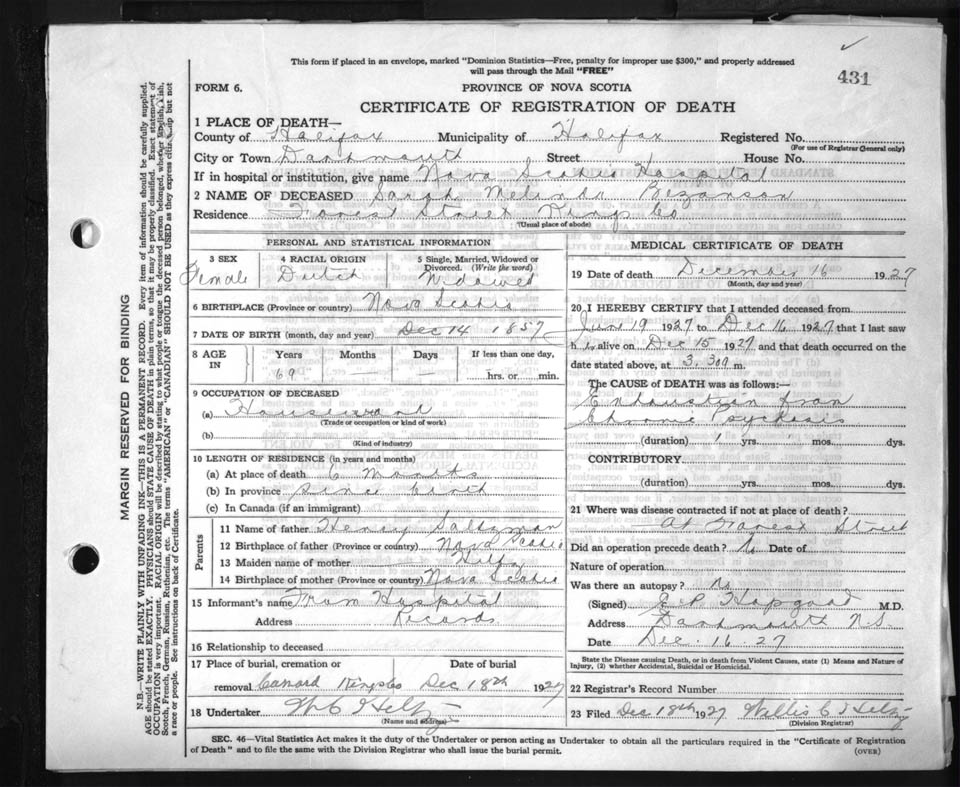 This form if placed in an envelope, marked "Dominion Statistics—Free, penalty for improper use $300," and properly addressed
will pass through the Mail "FREE"
431
FORM 6.
PROVINCE OF NOVA SCOTIA
CERTIFICATE OF REGISTRATION OF DEATH
1 PLACE OF DEATH—
County of Halifax Municipality of Halifax Registered No.
(For use of Registrar General only)
City or Town Dartmouth Street House No.
If in hospital or institution, give name Nova Scotia Hospital
2 NAME OF DECEASED Sarah Melinda Bezanson
Residence Forest Street Kings Co
(Usual place of abode)
PERSONAL AND STATISTICAL INFORMATION
3 SEX 4 RACIAL ORIGIN 5 Single, Married, Widowed or Divorced. (Write the word)
Female Dutch Widowed
6 BIRTHPLACE (Province or country) Nova Scotia
7 DATE OF BIRTH (month, day and year) Dec 14 1857
8 AGE IN Years Months Days If less than one day,
69 — — hrs. or min.
9 OCCUPATION OF DECEASED
(a) Housework
(Trade or occupation or kind of work)
(b)
(Kind of industry)
10 LENGTH OF RESIDENCE (in years and months)
(a) At place of death 6 months
(b) In province since birth
(c) In Canada (if an immigrant)
Parents
11 Name of father Henry Saltzman
12 Birthplace of father (Province or country) Nova Scotia
13 Maiden name of mother
14 Birthplace of mother (Province or country) Nova Scotia
15 Informant's name From Hospital
Address Records
16 Relationship to deceased
17 Place of burial, cremation or Date of burial
removal Canard Kings Co Dec 18th 1927
18 Undertaker
(Name and address)
MEDICAL CERTIFICATE OF DEATH
19 Date of death December 16 1927
(Month, day and year)
20 I HEREBY CERTIFY that I attended deceased from
June 19 1927 to Dec 16 1927 that I last saw
h er alive on Dec 15 1927 and that death occurred on the
date stated above, at m.
The CAUSE of DEATH was as follows:—
Exhaustion from
Chronic Psychosis
(duration) 1 yrs. mos. dys.
CONTRIBUTORY
(duration) yrs. mos. dys.
21 Where was disease contracted if not at place of death?
At Forest Street
Did an operation precede death? No Date of
Nature of operation
Was there an autopsy? No
(Signed) Hopgood M.D.
Address Dartmouth N.S
Date Dec. 16. 27
State the Disease causing Death, or in death from Violent Causes, state (1) Means and Nature of
Injury, (2) whether Accidental, Suicidal or Homicidal.
22 Registrar's Record Number
23 Filed Dec 18th 1927 Willis C
(Division Registrar)
SEC. 46—Vital Statistics Act makes it the duty of the Undertaker or person acting as Undertaker to obtain all the particulars required in the "Certificate of Registration
of Death" and to file the same with the Division Registrar who shall issue the burial permit.
(OVER)
MARGIN RESERVED FOR BINDING
N.B.—WRITE PLAINLY WITH UNFADING INK—THIS IS A PERMANENT RECORD. Every item of information should be carefully supplied.
AGE should be stated EXACTLY. PHYSICIANS should STATE CAUSE OF DEATH in plain terms, so that it may be properly classified. Exact statement of
OCCUPATION is very important. RACIAL ORIGIN will be described by stating to what people or tongue the deceased person belonged, whether English, Irish,
Scotch, French, German, Russian, Ruthenian, etc. The terms "AMERICAN" or "CANADIAN" SHOULD NOT BE USED as they express citizenship but not
a race or people. See instructions on back of Certificate.